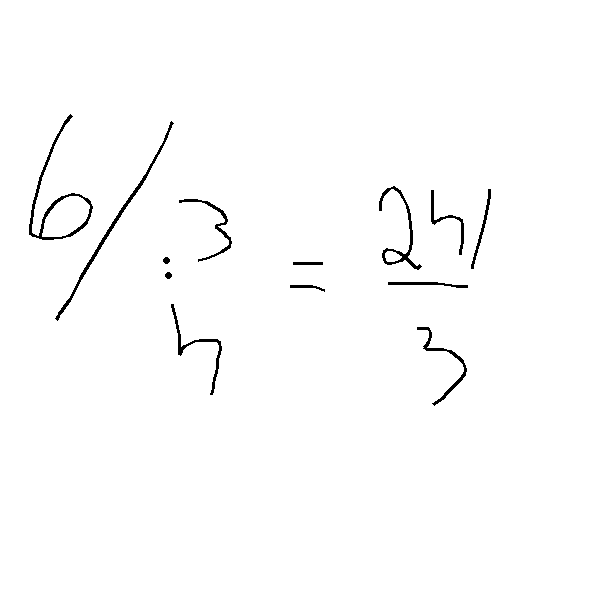 6/3:4 = 24/3